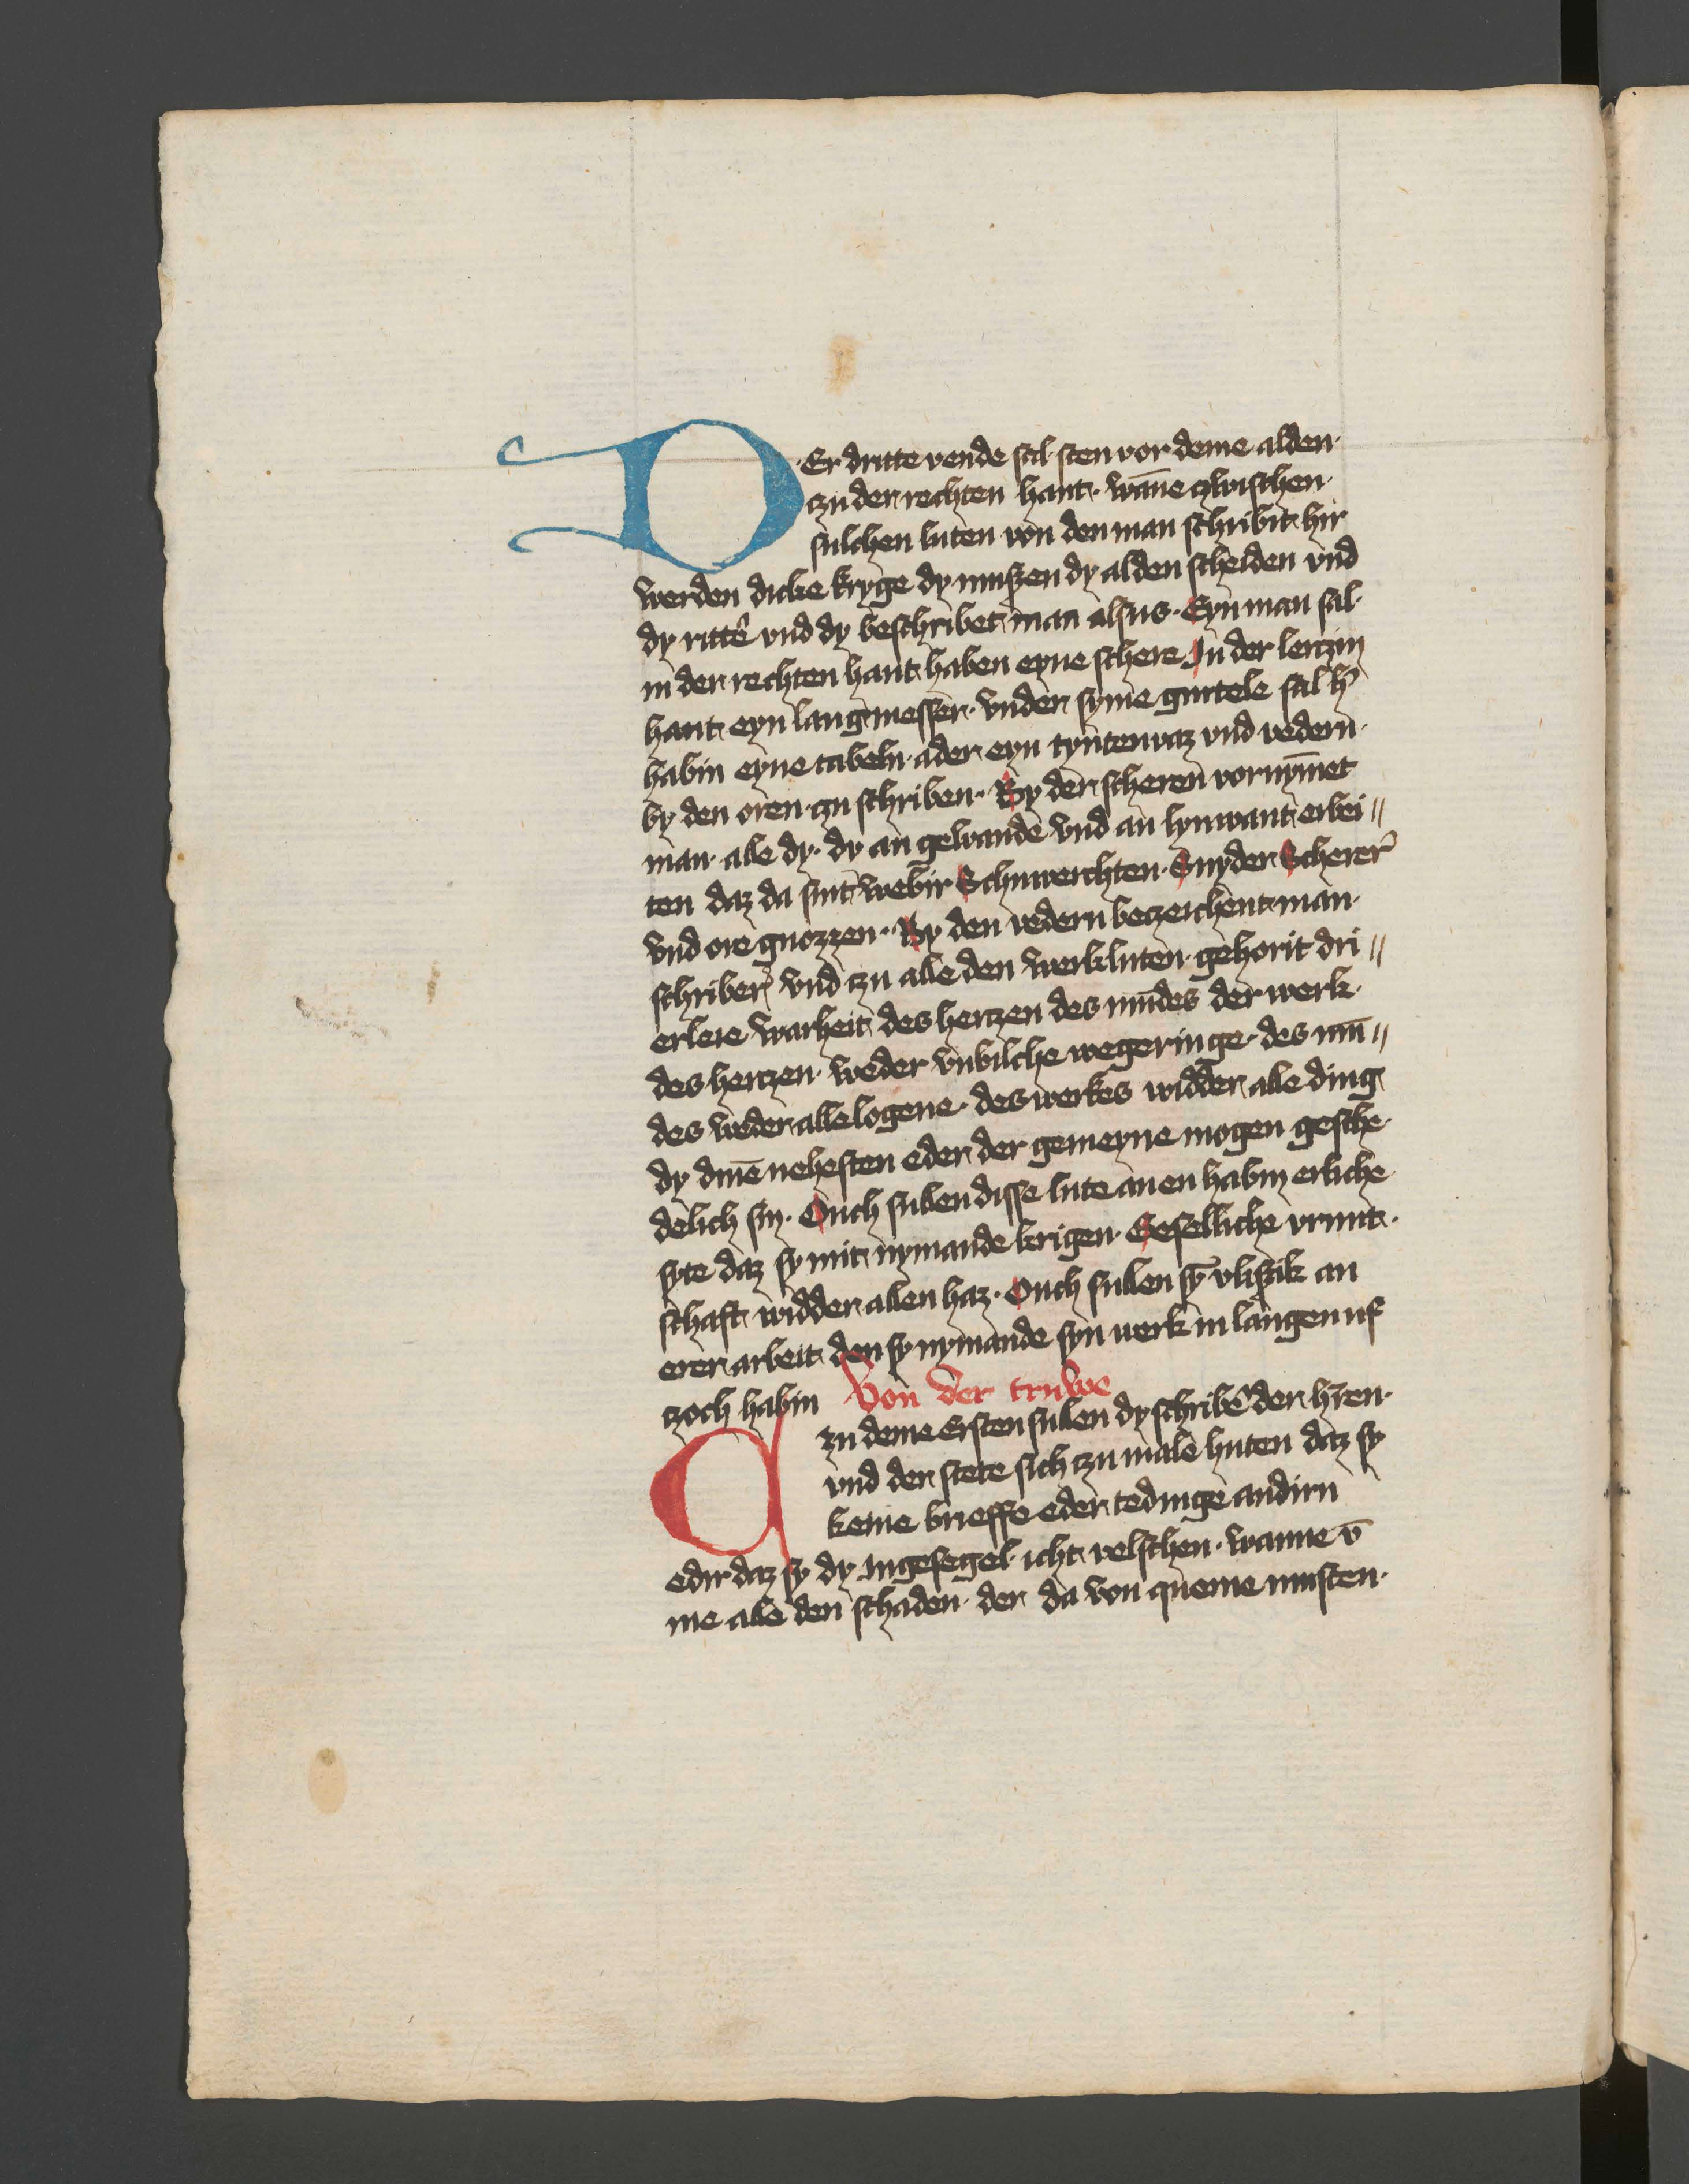 D·Er dritte vende sal sten vor deme alden·
czu der rechten hant· wāne czwischen·
sulchen luten von den man schribit hir
werden dicke kryge dy muszen dy alden scheiden vnd
dy ritt' vnd dy beschribet man alsus· Eyn man sal·
in der rechten hant haben eyne schere In der lenczin
hant eyn lang messer· vnder syme gurtele sal h'
habin eyne tabeln· ader eyn tyntenvaz vnd vedern·
by den oren· zu schriben· By der scheren vornȳmet
man· alle dy· dy an gewande vnd an lynwant erbei〃
ten daz da sint webir Schuwerchten· Snyder Scherer'
vnd ore gnozzen· By den vedern beczeichent man·
schriber' vnd czu alle den werkluten· gehorit dri〃
erleie warheit des herczen des mūdes der werk·
des herczen· weder vnbilche wegeringe· des mū〃
des weder alle logene· des werkes widder alle ding
dy dinē nehesten eder der gemeyne mogen gesche·
delich sin· Ouch sullen disse lute an en habin erliche
syte daz sy mit nymande krigen· Geselliche vrunt·
schaft widder allen haz· Ouch sullen sȳ vliszik an
erer arbeit den sy nymande syn werk in langen uf
czoch habin Von der truwe
Czu deme Ersten sullen dy schribē der h'ren·
vnd der stete sich czu male huten daz sy
keine brieffe eder tedinge andirn
edir daz sy dy Ingesegel· icht velschen· wanne v̄
me alle den schaden· der da von queme musten·